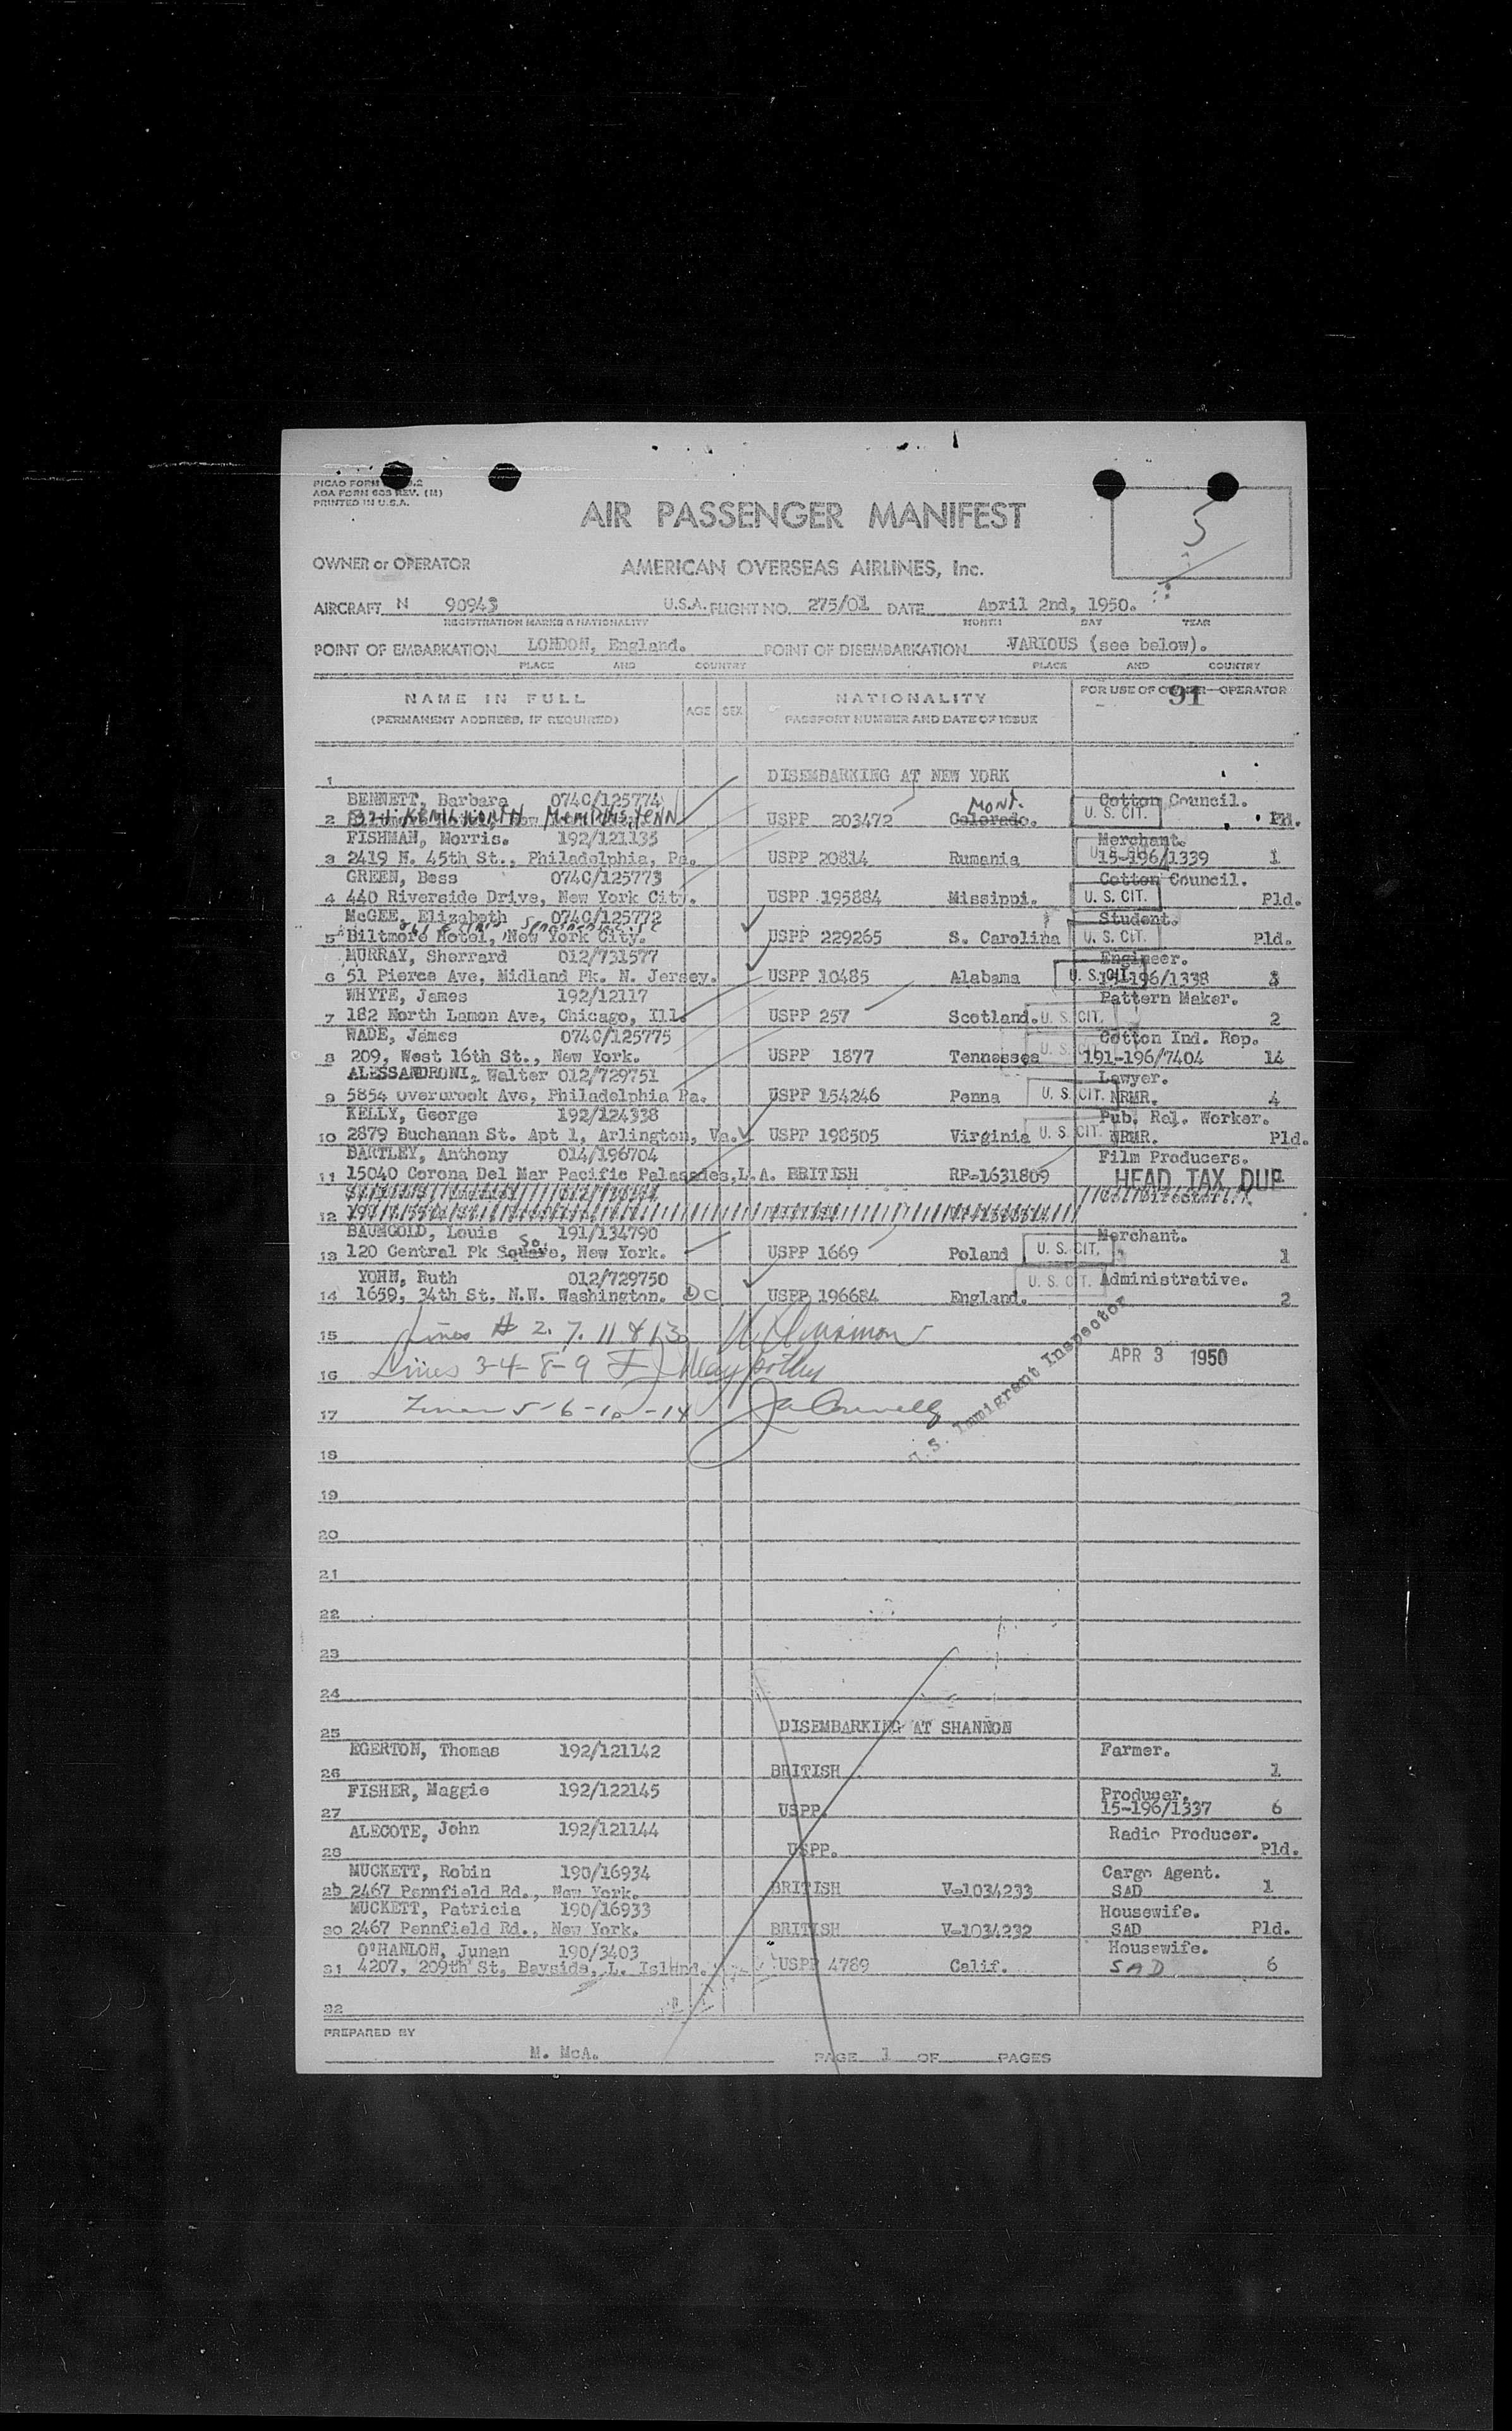 PICAO FORM
AOA FORM 603 REV. (M)
PRINTED IN U.S.A.
AIR PASSENGER MANIFEST
5
OWNER or OPERATOR AMERICAN OVERSEAS AIRLINES, Inc.
AIRCRAFT N 90943 U.S.A. FLIGHT NO. 275/01 DATE April 2nd, 1950.
REGISTRATION MARKS & NATIONALITY MONTH DAY YEAR
POINT OF EMBARKATION LONDON, England. POINT OF DISEMBARKATION VARIOUS (see below).
PLACE AND COUNTRY PLACE AND COUNTRY
NAME IN FULL AGE SEX NATIONALITY FOR USE OF OWNER-OPERATOR
91
(PERMANENT ADDRESS, IF REQUIRED) PASSPORT NUMBER AND DATE OF ISSUE
1 DISEMBARKING AT NEW YORK
BENNETT, Barbara 0740/125774 MONT. Cotton Council.
2 KENILWORTH MEMPHIS, TENN USPP 203472 Colorado. U. S. CIT.
FISHMAN, Morris. 192/121135 Merchant.
3 2419 N. 45th St., Philadelphia, Pa. USPP 20814 Rumania 15-196/1339 1
GREEN, Bess 0740/125773 Cotton Council.
4 440 Riverside Drive, New York City. USPP 195884 Missippi. U. S. CIT. Pld.
McGEE, Elizabeth 0740/125772 Student.
5 Biltmore Hotel, New York City. USPP 229265 S. Carolina U. S. CIT. Pld.
MURRAY, Sherrard 012/731577 Engineer.
6 51 Pierce Ave, Midland Pk. N. Jersey. USPP 10485 Alabama U. S. CIT. 196/1338 3
WHYTE, James 192/12117 Pattern Maker.
7 182 North Lamon Ave, Chicago, Ill. USPP 257 Scotland. U. S. CIT. 2
WADE, James 0740/125775 Cotton Ind. Rep.
8 209, West 16th St., New York. USPP 1877 Tennessee U. S. CIT. 191-196/7404 14
ALESSANDRONI, Walter 012/729751 Lawyer.
9 5854 Overbrook Ave, Philadelphia Pa. USPP 154246 Penna U. S. CIT. NRMR. 4
KELLY, George 192/124338 Pub. Rel. Worker.
10 2879 Buchanan St. Apt 1, Arlington, Va. USPP 198505 Virginia U. S. CIT. NRMR. Pld.
BARTLEY, Anthony 014/196704 Film Producers.
11 15040 Corona Del Mar Pacific Palasades, L.A. BRITISH RP-1631809 HEAD TAX DUE
12
BAUMGOLD, Louis 191/134790 Merchant.
13 120 Central Pk Square, So. New York. USPP 1669 Poland U. S. CIT. 1
YOHN, Ruth 012/729750 Administrative.
14 1659, 34th St. N.W. Washington. DC USPP 196684 England. U. S. CIT. 2
15 Lines # 2. 7. 11 & 13
16 Lines 3-4-8-9 APR 3 1950
17 Lines 5-6-10-14
U.S. Immigrant Inspector
18
19
20
21
22
23
24
25 DISEMBARKING AT SHANNON
EGERTON, Thomas 192/121142 Farmer.
26 BRITISH 1
FISHER, Maggie 192/122145 Producer.
27 USPP. 15-196/1337 6
ALECOTE, John 192/121144 Radio Producer.
28 USPP. Pld.
MUCKETT, Robin 190/16934 Cargo Agent.
29 2467 Pennfield Rd., New York. BRITISH V-1034233 SAD 1
MUCKETT, Patricia 190/16933 Housewife.
30 2467 Pennfield Rd., New York. BRITISH V-1034232 SAD Pld.
O'HANLON, Junan 190/3403 Housewife.
31 4207, 209th St, Bayside, L. Island. USPP 4789 Calif. SAD 6
32
PREPARED BY
M. McA. PAGE 1 OF PAGES